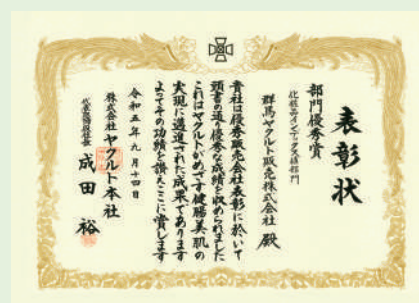 表彰状
部門優秀賞
化粧品インデックス値部門
群馬ヤクルト販売株式会社 殿
貴社は優秀販売会社表彰に於いて
頭書の通り優秀な成績を収められました
これはヤクルトがめざす健腸美肌の
実現に邁進された成果であります
よってその功績を讃えここに賞します
令和五年九月十四日
株式会社ヤクルト本社
代表取締役社長 成田 裕